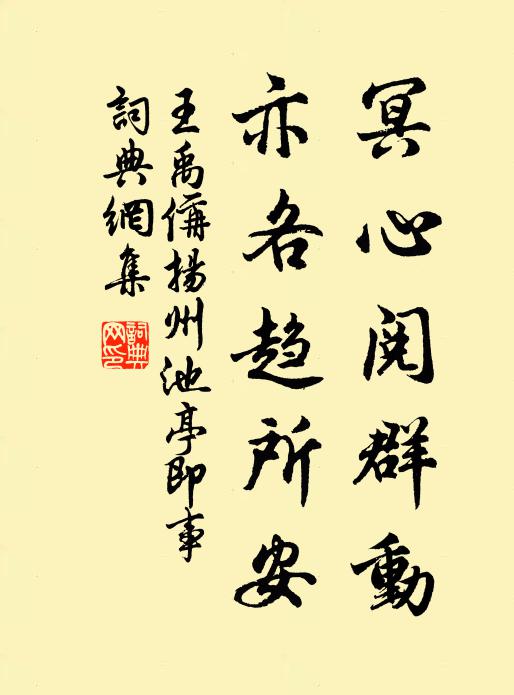 冥心閱群動
亦各趨所安
王禹偁揚州池亭即事
詞典網集
詞典
网印